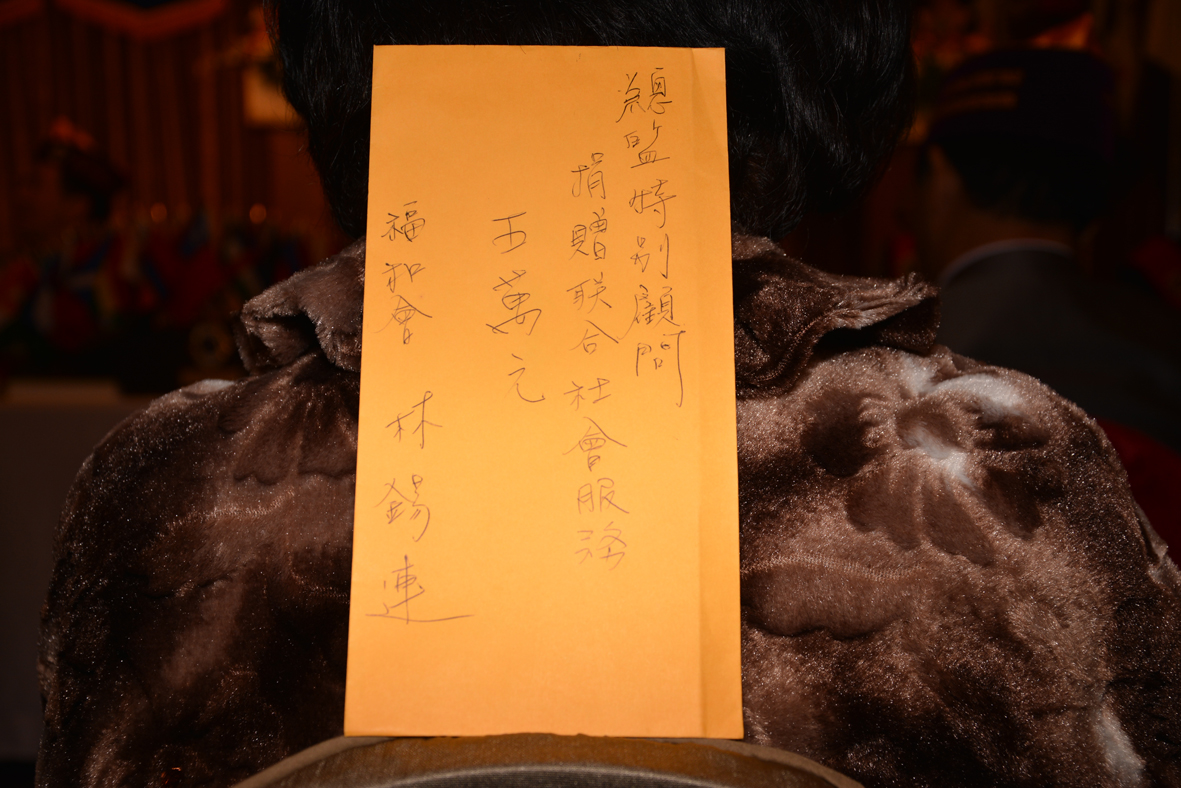 總監特別顧問
捐贈联合社會服務
五萬元
福和會 林錫連